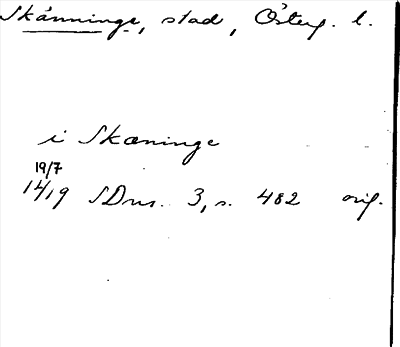 Skänninge, stad, Österg. l.
i Skæninge
19/7
1419 SDns. 3, s. 482 orig.